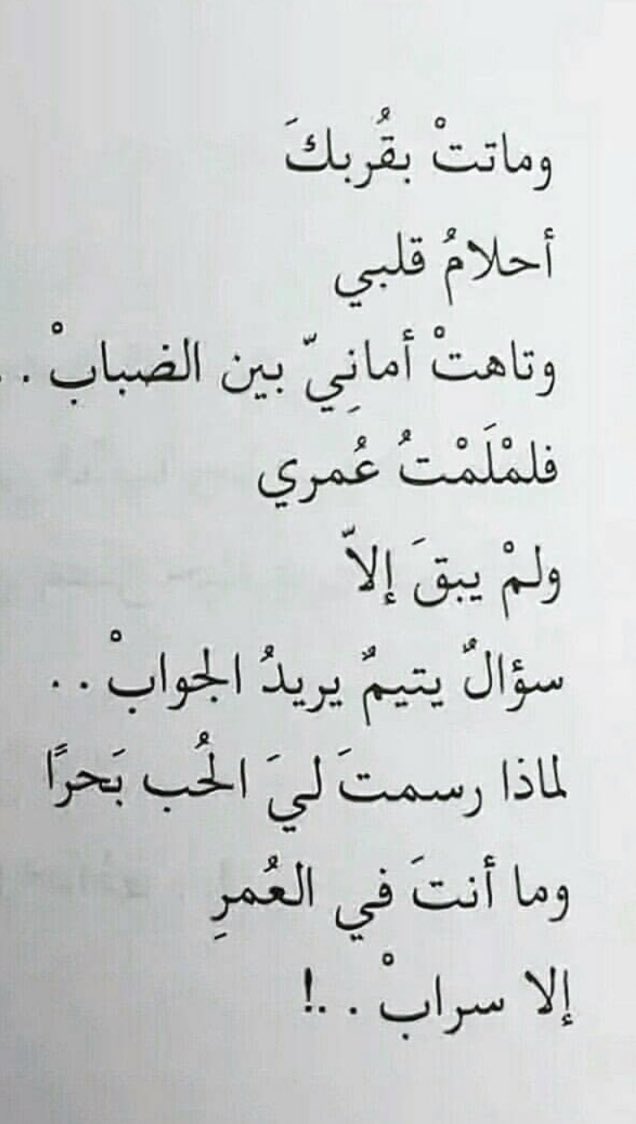 وماتتْ بقُربكَ
أحلامُ قلبي
وتاهتْ أمانِيّ بين الضبابْ . .
فلمْلَمْتُ عُمري
ولمْ يبقَ إلاّ
سؤالٌ يتيمٌ يريدُ الجوابْ . .
لماذا رسمتَ ليَ الحُب بَحرًا
وما أنتَ في العُمرِ
إلا سرابْ . .!